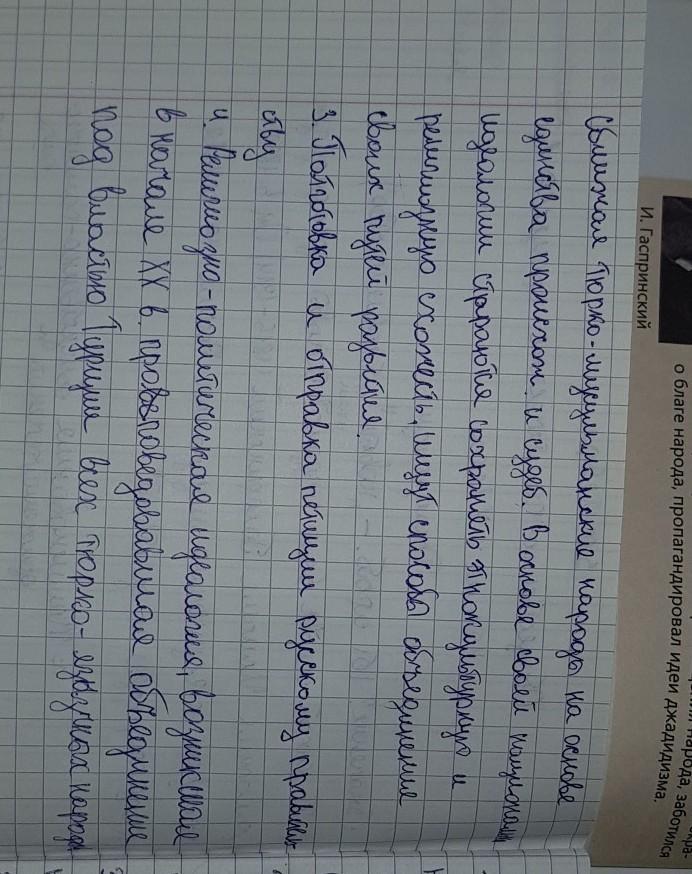 народа, заботился
о благе народа, пропагандировал идеи джадидизма.
И. Гаспринский
сближая тюрко-мусульманские народы на основе
единства происхож. и судеб. В основе своей национальн
идеологии стараются сохранять этнокультурную и
религиозную схожесть, ищут способы объединения
своих путей развития.
3. Подготовка и отправка петиции русскому правитель-
ству
4. Религиозно-политическая идеология, возникшая
в начале XX в. проповедовавшая объединение
под властью Турции всех тюрко-язычных народ